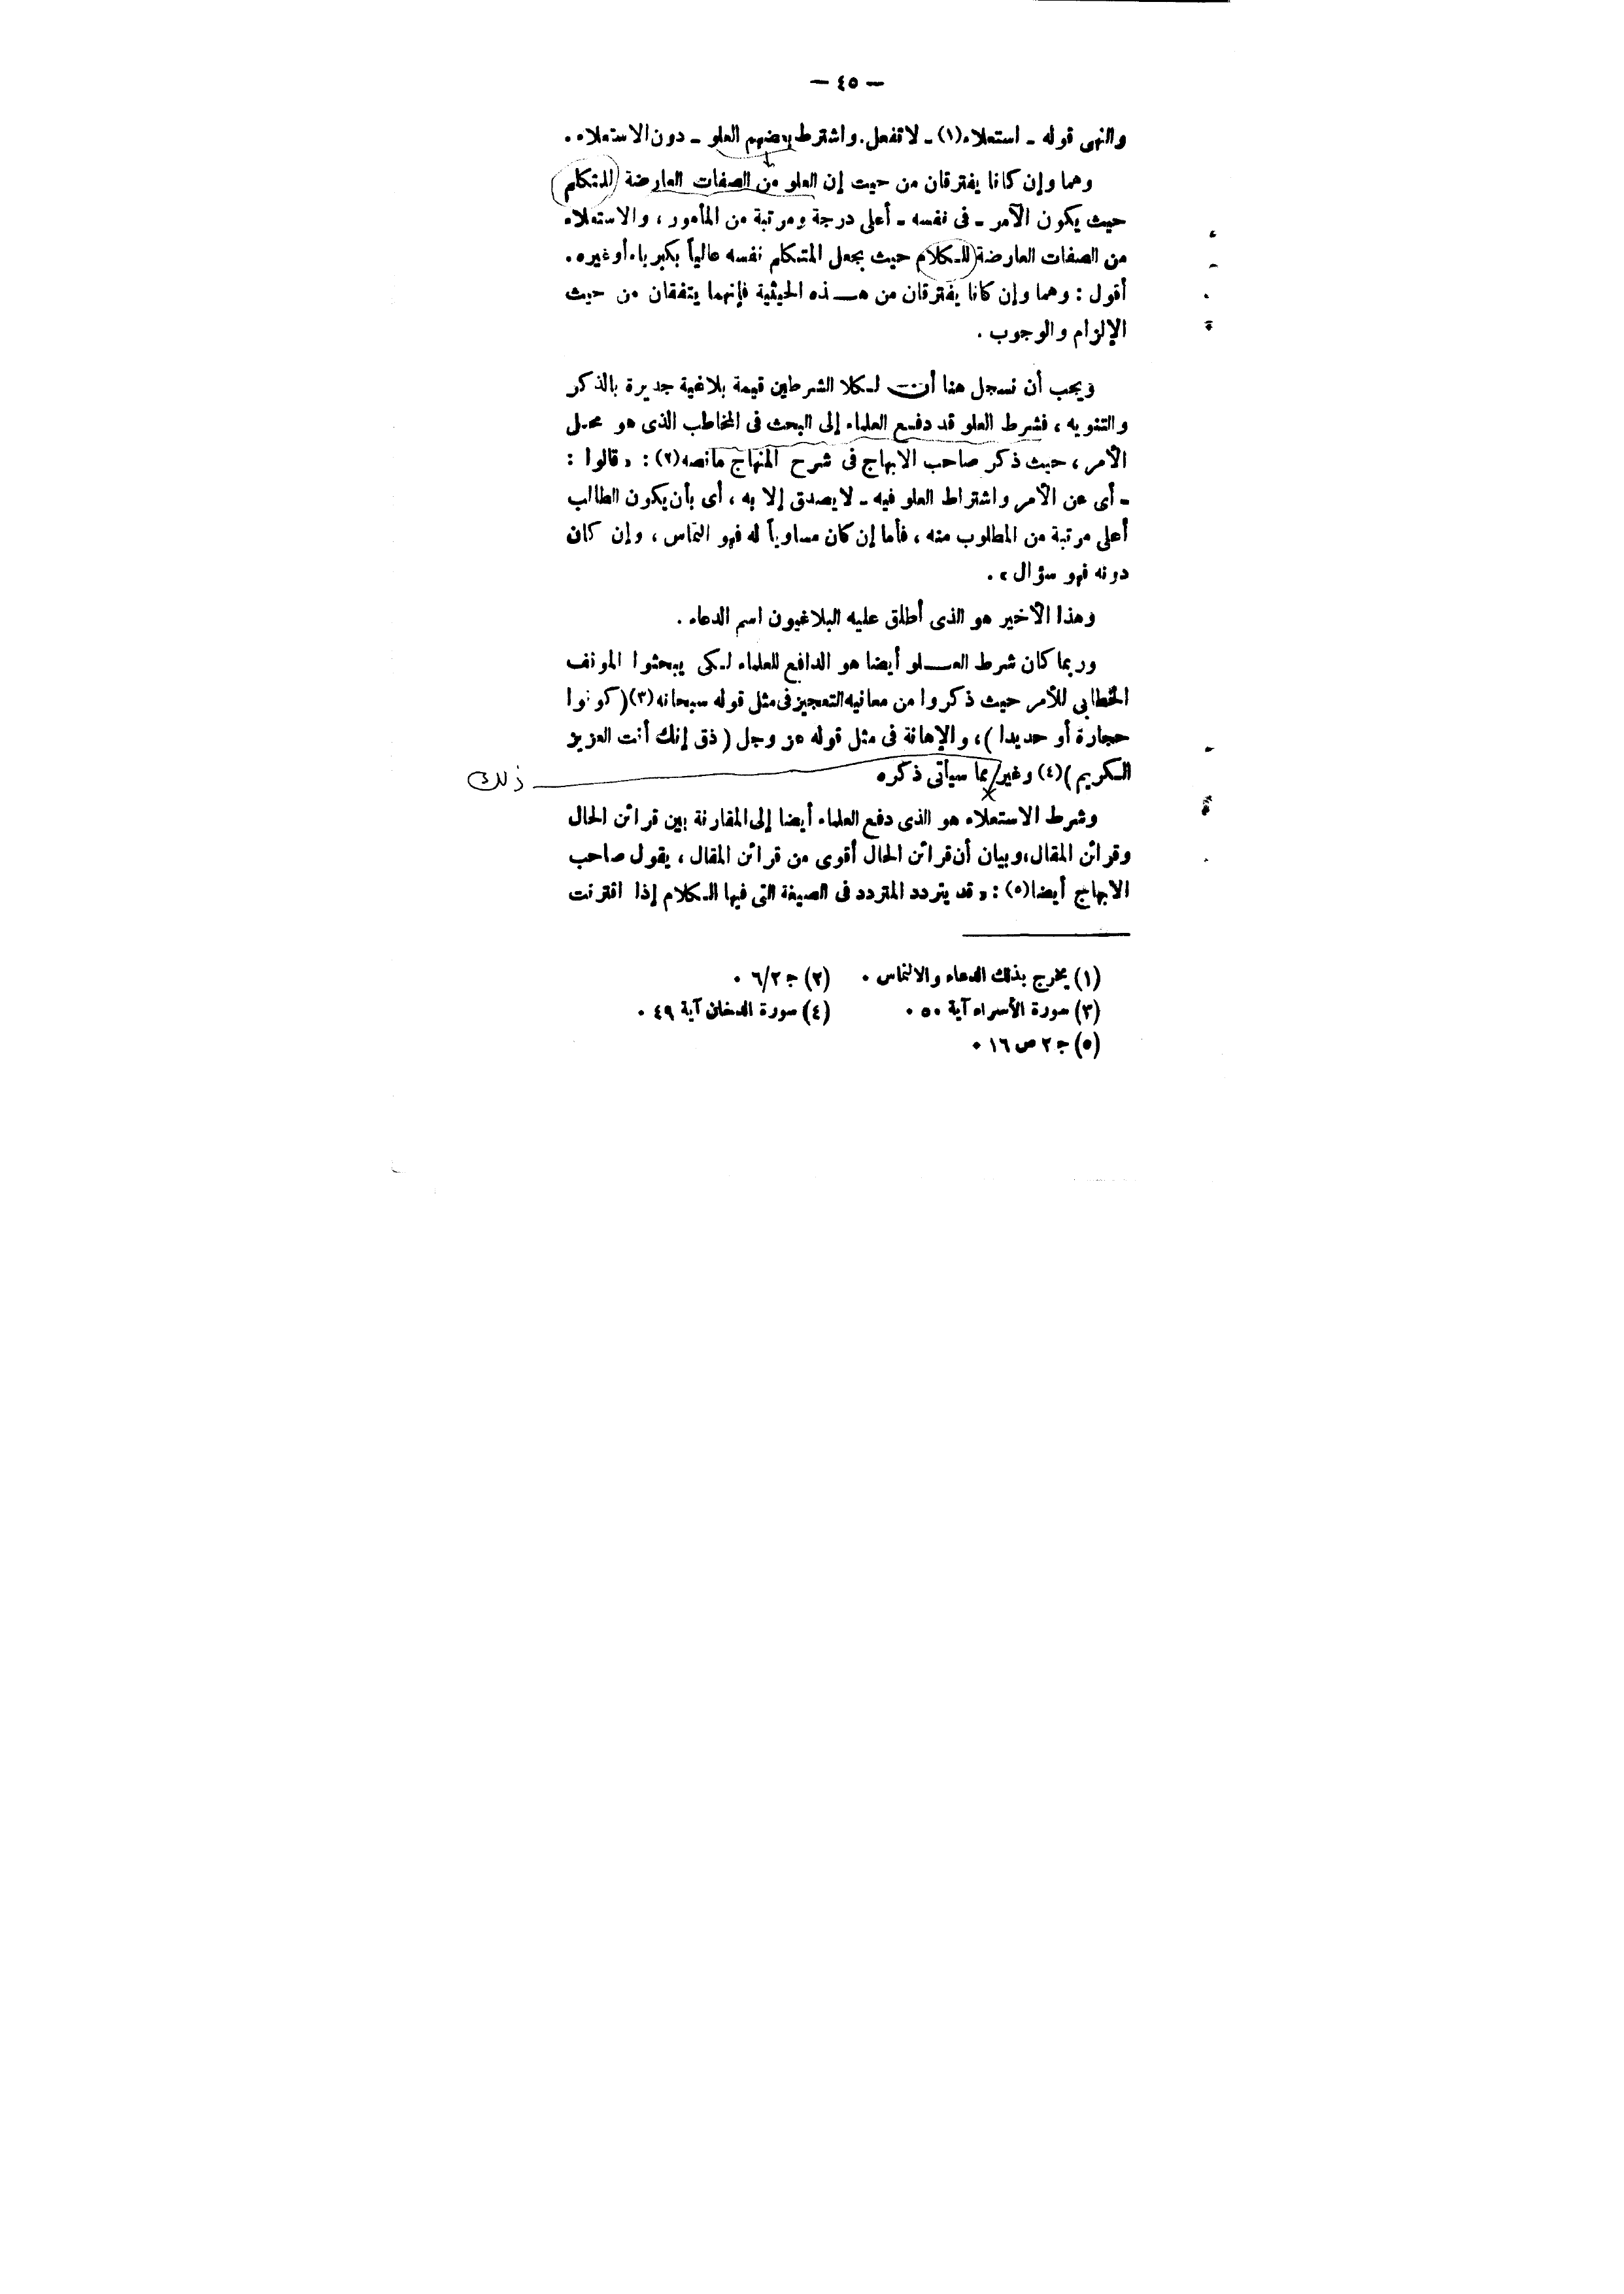 — ٤٥ —
والنهى قوله - استعلاء (١) - لا تفعل. واشترط بعضهم العلو - دون الاستعلاء.
وهما وإن كانا يفترقان من حيث إن العلو من الصفات العارضة للمتكلم
حيث يكون الآمر - فى نفسه - أعلى درجة ومرتبة من المأمور ، والاستعلاء
من الصفات العارضة للكلام حيث يجعل المتكلم نفسه عالياً بكبرياء أو غيره.
أقول : وهما وإن كانا يفترقان من هذه الحيثية فإنهما يتفقان من حيث
الإلزام والوجوب .
ويجب أن نسجل هنا أن لكلا الشرطين قيمة بلاغية جديرة بالذكر
والتنويه ، فشرط العلو قد دفع العلماء إلى البحث فى المخاطب الذى هو محل
الأمر ، حيث ذكر صاحب الابهاج فى شرح المنهاج ما نصه (٢) : « قالوا :
- أى عن الأمر واشتراط العلو فيه - لا يصدق إلا به ، أى بأن يكون الطالب
أعلى مرتبة من المطلوب منه ، فأما إن كان مساوياً له فهو التماس ، وإن كان
دونه فهو سؤال » .
وهذا الأخير هو الذى أطلق عليه البلاغيون اسم الدعاء .
وربما كان شرط العلو أيضا هو الدافع للعلماء لكى يبحثوا الموقف
الخطابى للأمر حيث ذكروا من معانيه التعجيز فى مثل قوله سبحانه (٣) ( كونوا
حجارة أو حديدا ) ، والإهانة فى مثل قوله عز وجل ( ذق إنك أنت العزيز
الكريم ) (٤) وغير مما سيأتى ذكره
ذلك
وشرط الاستعلاء هو الذى دفع العلماء أيضا إلى المقارنة بين قرائن الحال
وقرائن المقال ، وبيان أن قرائن الحال أقوى من قرائن المقال ، يقول صاحب
الابهاج أيضا (٥) : « قد يتردد المتردد فى الصيغة التى فيها الكلام إذا اقترنت
(١) يخرج بذلك الدعاء والالتماس . (٢) ج ٦/٢ .
(٣) سورة الأسراء آية ٥٠ . (٤) سورة الدخان آية ٤٩ .
(٥) ج ٢ ص ١٦ .